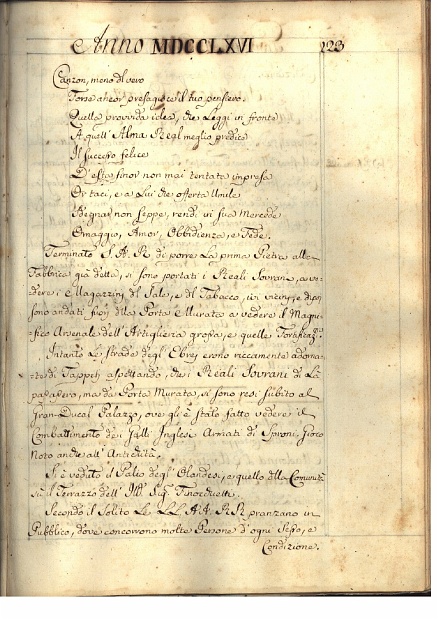 Anno MDCCLXVI 123
Canzon, meno di vero
Forse ancor presagisce il tuo pensiero.
Quella provvida idea, che Leggi in fronte
A quell'Alma Real meglio predice
Il successo felice
D'esta sinor non mai tentata impresa
Or taci, e a Lui che offerta Umile
Sdegnar non seppe, rendi in sua Mercede
Omaggio, Amor, Obbidienza, e Fede.
Terminato S. A. R. di porre La prima Pietra alla
Fabbrica già detta, si sono portati i Reali Sovrani, a ve-
dere i Magazzini di Sale, e di Tabacco, ivi vicini, e dipoi
sono andati fuori della Porta e Murata a vedere il Magni-
fico Arsenale dell'Artiglieria grossa, e quelle Fortificaz.ni
Intanto Le Strade degl'Ebrej erono riccamente adorna-
te di Tappeti aspettando, che i Reali Sovrani di Là
passassero, ma da Porta Murata, si sono resi subito al
Gran-Ducal Palazzo, ove gli è stato fatto vedere il
Combattimento dei Galli Inglesi Armati di Sproni, gioco
Noto anche all'Antichità.
Si è veduto il Palio degl'Olandesi, e quello della Comunità
sù il Terrazzo dell' Ill. Sig.
Secondo il Solito Le LL. AA. RR. pranzano in
Pubblico, dove concorrono molte Persone d'ogni Sesso, e
Condizione.